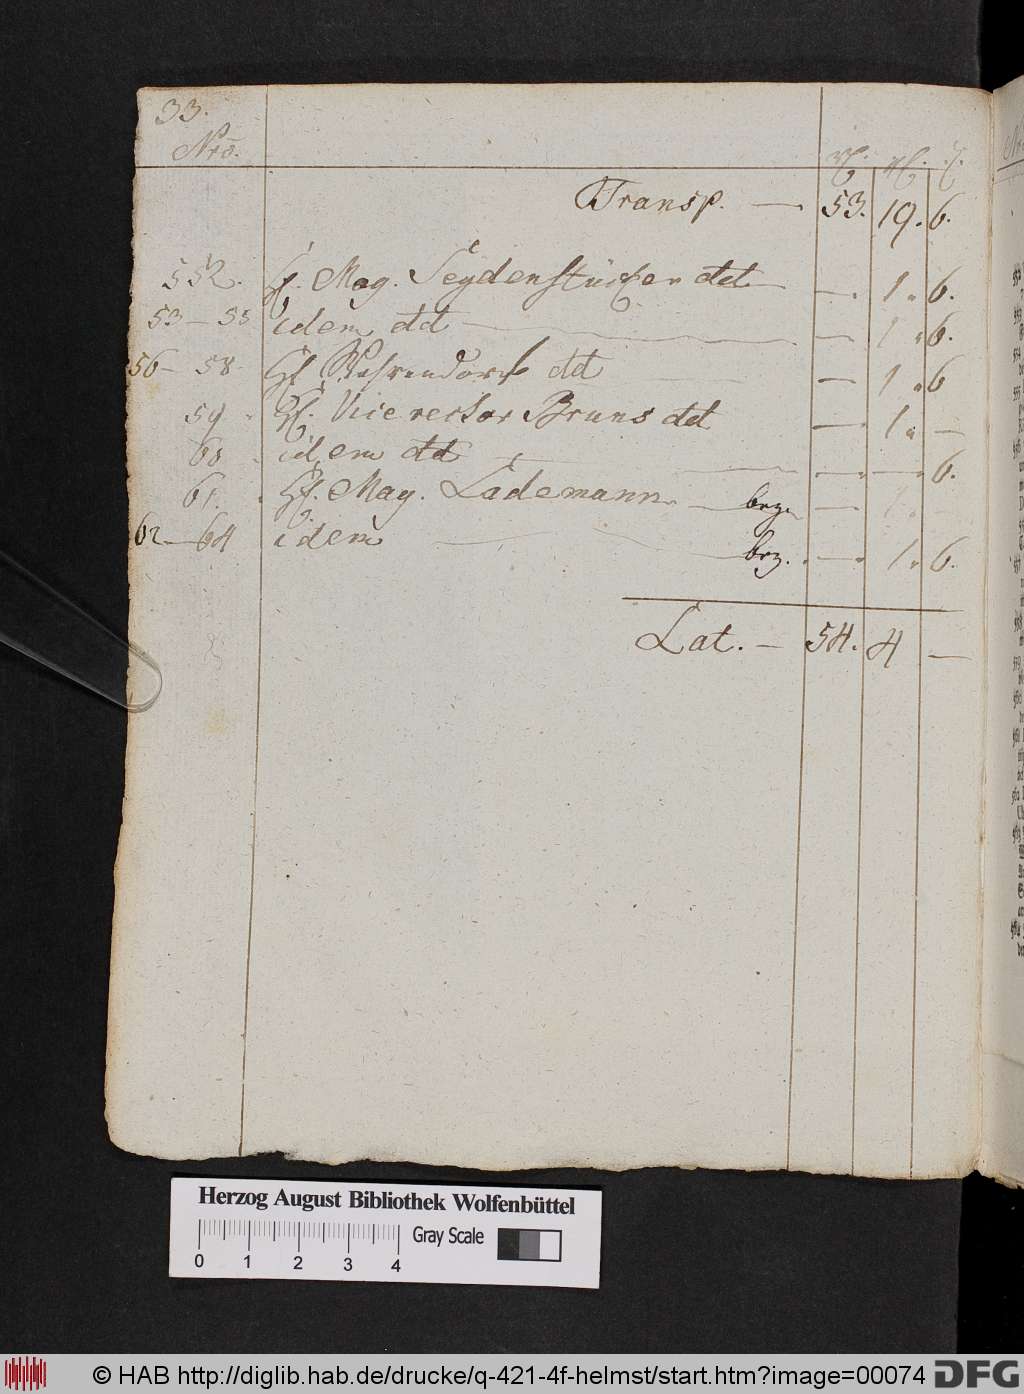 33.
Nro.
Transp. — 53. 19. 6.
552. H. Mag. Seydenstücker dd — . 1. 6.
53 — 55 idem dd — 1. 6.
56 — 58. H. Wahrendorf dd — 1. 6
59 H. Vicerector Bruns dd — . 1. —
60 idem dd — . — . 6.
61. H. Mag. Lademann bez. — . 1. —
62 — 64 idem bez. . — . 1. 6.
Lat. — 54. 4 —
Herzog August Bibliothek Wolfenbüttel
Gray Scale
0 1 2 3 4
© HAB http://diglib.hab.de/drucke/q-421-4f-helmst/start.htm?image=00074 DFG